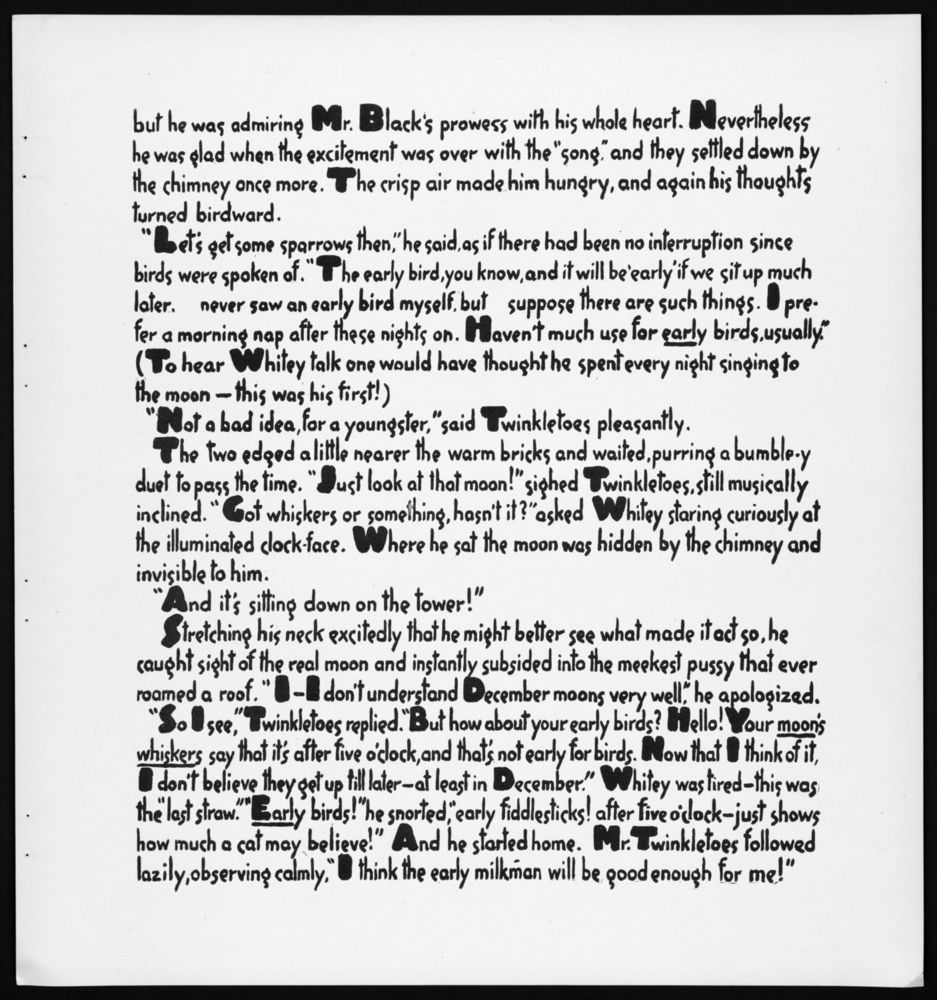 but he was admiring Mr. Black's prowess with his whole heart. Nevertheless
he was glad when the excitement was over with the "song," and they settled down by
the chimney once more. The crisp air made him hungry, and again his thoughts
turned birdward.
"Let's get some sparrows then," he said, as if there had been no interruption since
birds were spoken of. "The early bird, you know, and it will be 'early' if we sit up much
later. never saw an early bird myself, but suppose there are such things. I pre-
fer a morning nap after these nights on. Haven't much use for early birds, usually."
(To hear Whitey talk one would have thought he spent every night singing to
the moon — this was his first!)
"Not a bad idea, for a youngster," said Twinkletoes pleasantly.
The two edged a little nearer the warm bricks and waited, purring a bumble-y
duet to pass the time. "Just look at that moon!" sighed Twinkletoes, still musically
inclined. "Got whiskers or something, hasn't it?" asked Whitey staring curiously at
the illuminated clock-face. Where he sat the moon was hidden by the chimney and
invisible to him.
"And it's sitting down on the tower!"
Stretching his neck excitedly that he might better see what made it act so, he
caught sight of the real moon and instantly subsided into the meekest pussy that ever
roamed a roof. "I-I don't understand December moons very well," he apologized.
"So I see," Twinkletoes replied. "But how about your early birds? Hello! Your moon's
whiskers say that it's after five o'clock, and that's not early for birds. Now that I think of it,
I don't believe they get up till later—at least in December." Whitey was tired—this was
the "last straw." "Early birds!" he snorted, "early fiddlesticks! after five o'clock—just shows
how much a cat may believe!" And he started home. Mr. Twinkletoes followed
lazily, observing calmly, "I think the early milkman will be good enough for me!"